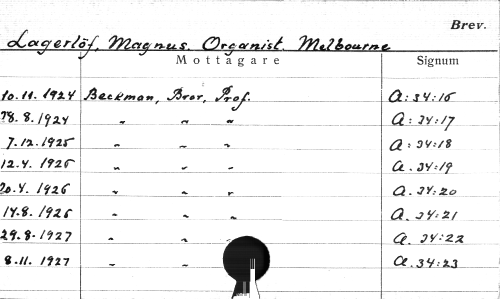 Brev.
Lagerlöf, Magnus. Organist. Melbourne
Mottagare Signum
10.11. 1924 Beckman, Bror, Prof. A:34:16
28.8.1924 " " " A:34:17
7.12.1925 " " " A:34:18
12.4. 1926 " " " A.34:19
20.4. 1926 " " " A.34:20
14.8. 1926 " " " A.34:21
29.8. 1927 " " " A. 34:22
8.11. 1927 " " A.34:23